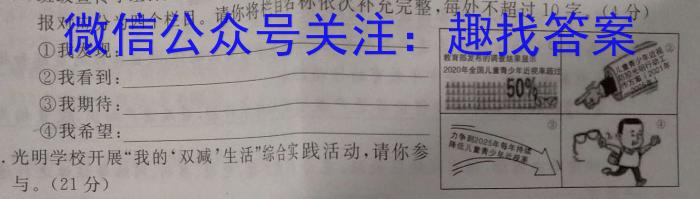 报对分为四个栏目。请你将栏目名称依次补充完整,每处不超过10字。(4分)
微信公众号关注:趣找答案
①我发现:
②我看到:
③我期待:
④我希望:
教育部发布的调查结果显示
2020年全国儿童青少年近视率超过
50%
②
儿童青少年近视
防控光明行动工
作方案(2021年
③
力争到2025年每年持续
降低儿童青少年近视率
④
.光明学校开展“我的‘双减’生活”综合实践活动,请你参
与。(21分)